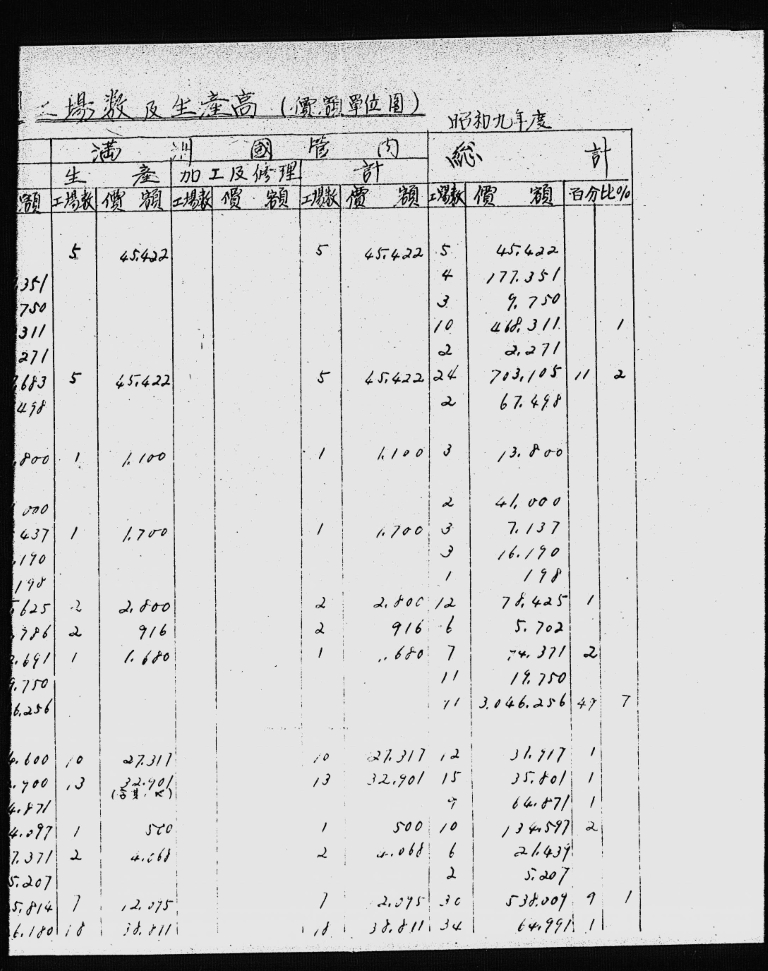 場数及生産高(價額單位圓)
昭和九年度
満洲國管内 総計
生産 加工及修理 計
額 工場数 價額 工場数 價額 工場数 價額 工場数 價額 百分比%
5 45.422 5 45.422 5 45.422
351 4 177.351
750 3 9.750
311 10 468.311 1
271 2 2.271
683 5 45.422 5 45.422 24 703.105 11 2
498 2 67.498
.800 1 1.100 1 1.100 3 13.800
000 2 41.000
437 1 1.700 1 1.700 3 7.137
.190 3 16.190
198 1 198
.625 2 2.800 2 2.800 12 78.425 1
.786 2 916 2 916 6 5.702
.691 1 1.680 1 .680 7 74.371 2
9.750 11 19.750
6.256 11 3.046.256 49 7
4.600 10 27.317 10 27.317 12 31.917 1
.900 13 32.901 13 32.901 15 35.801 1
4.871 64.871 1
4.097 1 500 1 500 10 134.597 2
7.371 2 4.068 2 4.068 6 21.439
5.207 2 5.207
5.814 7 12.095 7 2.095 30 538.009 9 1
6.180 18 38.811 18 38.811 34 64.991 1